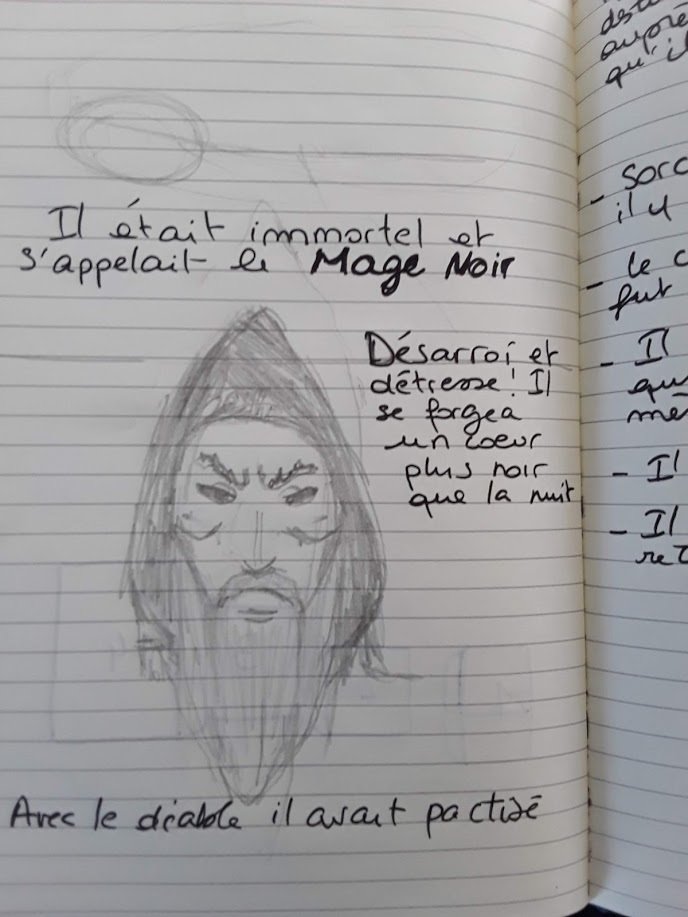 Il était immortel et
s'appelait le Mage Noir
Désarroi et
détresse! Il
se forgea
un coeur
plus noir
que la nuit
Avec le diable il avait pactisé
auprè
qu'il
- Sorc
il y
- le c
fut
- Il
qu
mêm
- Il
- Il